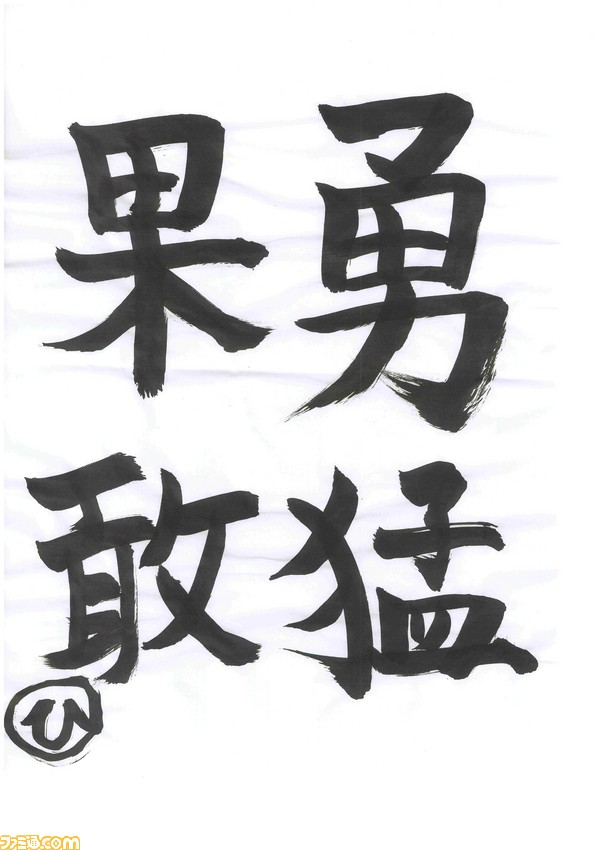 勇猛
果敢
ひ
ファミ通.com